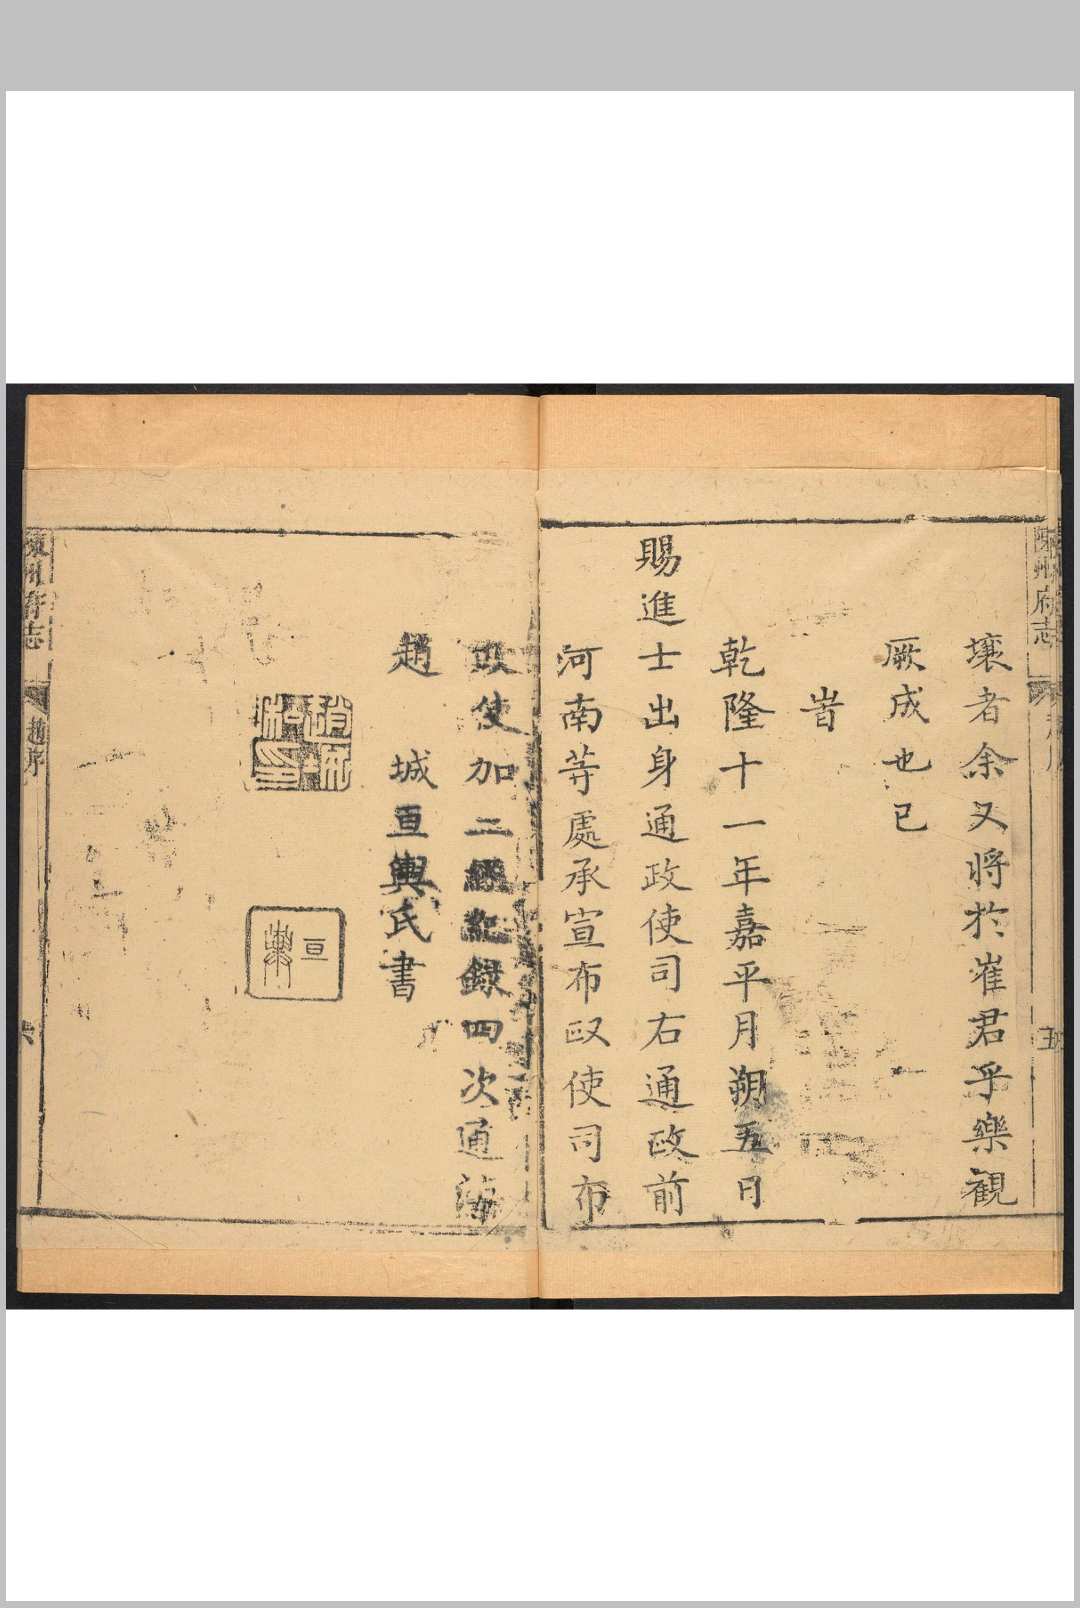 陳州府志
五
壤者余又將於崔君乎樂觀
厥成也已
旹
乾隆十一年嘉平月朔五日
賜進士出身通政使司右通政前
河南等處承宣布政使司布
政使加二級紀録四次通
趙 城亘輿氏書
亘輿
陳州府志
趙序
六